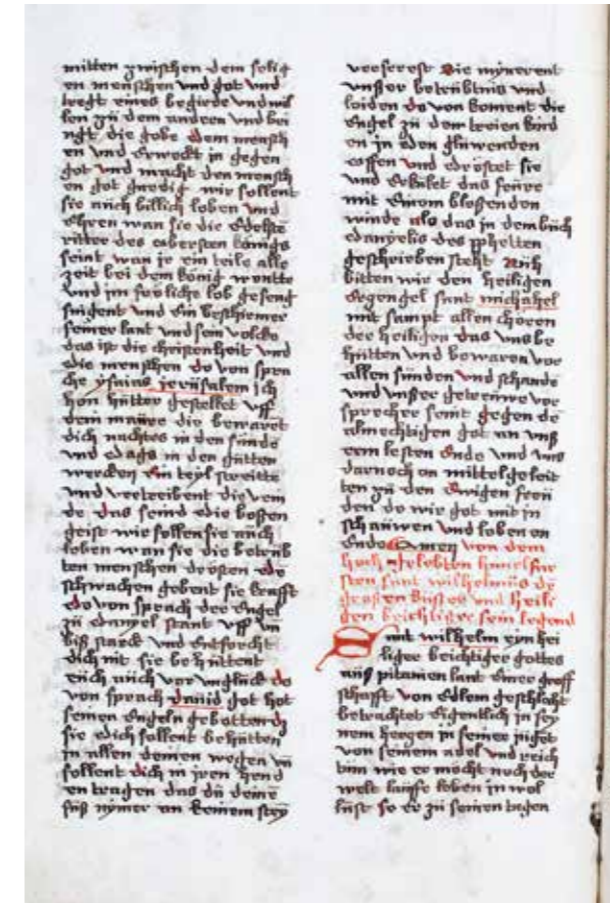 mitten zwischen dem selig
en menschen vnd got vnd
tregt eines begirde vnd wil
len zü dem anderen vnd bri
ngt die gobe dem mensch
en vnd Erweckt in gegen
got vnd macht den mensch
en got gnedig wir sollent
sie auch billich loben vnd
Ehren wan sie die Edelste
ritter des obersten königs
seint wan je ein teile alle
zeit bei dem könig
vnd im frölichs lob geseng
singent vnd Ein beschiemer
seiner lant vnd sein volcks
das ist die christenheit vnd
die menschen do von spra
che ysaias jerusalem ich
hon hütter gestellet vff
dein maüre die bewaret
dich nachtes in den sünde
vnd dags in den gütten
wercken Ein teyl streitte
vnd vertreibent die vein
de das seind die bößen
geist wir sollen sie auch
loben wan sie die betrüb
ten menschen drösten die
schwachen gebent sie krafft
do von sprach der Engel
zü danyel stant vff vn
biß starck vnd Entförcht
dich nit sie behüttent
eüch auch vor vnglück do
von sprach dauid got hot
seinen Engeln gebotten dz
sie dich sollent behütten
in allen deinen wegen vn
sollent dich in jren hend
en tragen das dü deine
füß nymer an keinem stey
verserest Sie mynerent
vnßer betrübtnis vnd
leiden do von koment die
Engel zü dem dreien kind
en in den glüwenden
offen vnd dröstet sie
vnd Erkület das feüre
mit Einem bloßenden
winde als das in dem büch
danyelis des pphetten
geschrieben steht
bitten wir den heiligen
Ergengel sant michahel
mit sampt allen chören
der heiligen das vns be
hütten vnd bewaren vor
allen sünden vnd schande
vnd vnßer getreüwe vor
sprecher seint gegen de
almechtigen got an vnß
erm lesten Ende vnd vns
darnoch on mittel geleit
ten zü den Ewigen freü
den do wir got mit in
schauwen vnd loben on
Ende Amen von dem
hoch gelobten himelfür
sten sant wilhelmüs de
großen büßer vnd heili
gen beichtiger sein legend
Sant wilhelm eyn hei
liger beichtiger gottes
auß pitanien lant Einer groff
schafft von Edlem geschlecht
betrachtet Eigentlich in sey
nem hertzen in seiner jüget
von seinem adel vnd reich
tüm wie er möcht noch der
welt laüffe leben in wol
lüst so er zü seinen tagen